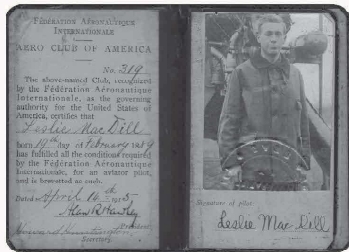 FÉDÉRATION AÉRONAUTIQUE
INTERNATIONALE
AERO CLUB OF AMERICA
No. 319
The above-named Club, recognized
by the Fédération Aéronautique
Internationale, as the governing
authority for the United States of
America, certifies that
Leslie MacDill
born 19th day of February 1889
has fulfilled all the conditions required
by the Fédération Aéronautique
Internationale, for an aviator pilot,
and is brevetted as such.
Dated April 14th 1915
Alan R. Hawley
Secretary.
Signature of pilot
Leslie MacDill